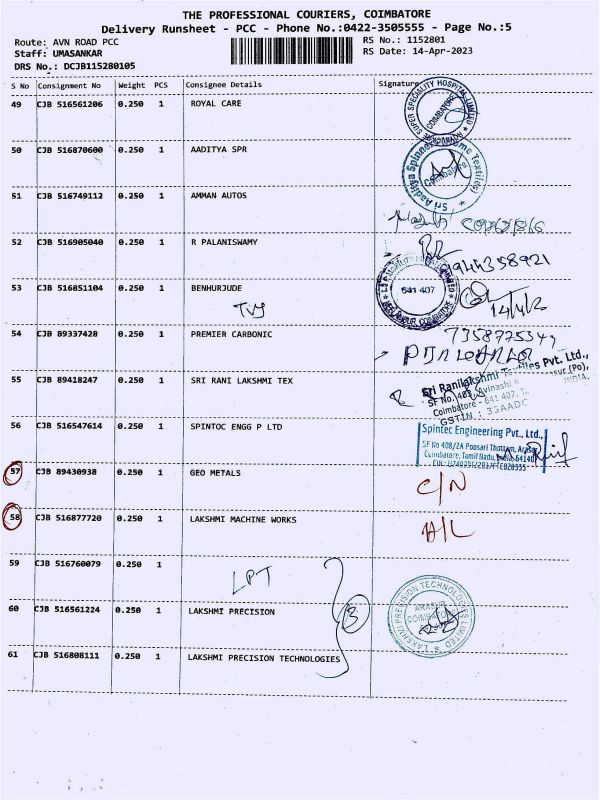 THE PROFESSIONAL COURIERS, COIMBATORE
Delivery Runsheet - PCC - Phone No.:0422-3505555 - Page No.:5
Route: AVN ROAD PCC RS No.: 1152801
Staff: UMASANKAR RS Date: 14-Apr-2023
DRS No.: DCJB115280105
S No Consignment No Weight PCS Consignee Details Signature
49 CJB 516561206 0.250 1 ROYAL CARE
COIMBATORE
50 CJB 516870600 0.250 1 AADITYA SPR
Coimbatore
51 CJB 516749112 0.250 1 AMMAN AUTOS
52 CJB 516905040 0.250 1 R PALANISWAMY
9444358921
53 CJB 516851104 0.250 1 BENHURJUDE
641 407
TVS
54 CJB 89337428 0.250 1 PREMIER CARBONIC
55 CJB 89418247 0.250 1 SRI RANI LAKSHMI TEX
Sri Ranilakshmi Textiles Pvt. Ltd.,
Coimbatore - 641 407.
INDIA.
56 CJB 516547614 0.250 1 SPINTOC ENGG P LTD
Spintec Engineering Pvt., Ltd.,
SF No 408/2A Poosari Thottam, Arasur
Coimbatore, Tamil Nadu, India 641407
57 CJB 89430938 0.250 1 GEO METALS
C/N
58 CJB 516877720 0.250 1 LAKSHMI MACHINE WORKS
A/L
59 CJB 516760079 0.250 1
LPT
60 CJB 516561224 0.250 1 LAKSHMI PRECISION
3
LAKSHMI PRECISION TECHNOLOGIES LIMITED
ARASUR
COIMBATORE
61 CJB 516808111 0.250 1 LAKSHMI PRECISION TECHNOLOGIES